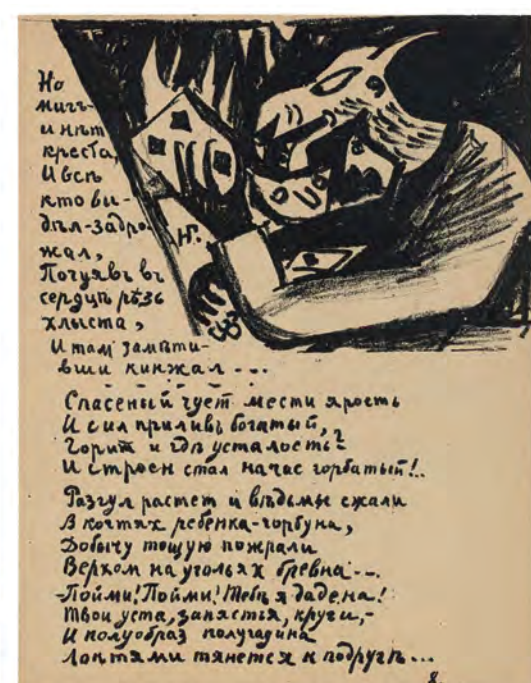 Но
мигъ
и нѣт
креста,
И всѣ
кто ви-
дѣл-задро-
жал,
Почуявъ въ
сердцѣ рѣзь
хлыста,
И там замѣти-
вши кинжал - - -
НГ.
Спасеный чует мести ярость
И сил приливъ богатый,
Горит и гдѣ усталость?
И строен стал на час горбатый!..
Разгул растет и вѣдьмы сжали
В когтях ребенка-горбуна,
Добычу тощую пожрали
Верхом на угольях бревна - - .
-Пойми! Пойми! Тебѣ я дадена!
Твои уста, запястья, круги, -
И полуобраз полугадина
Локтями тянется к подругѣ...
8.